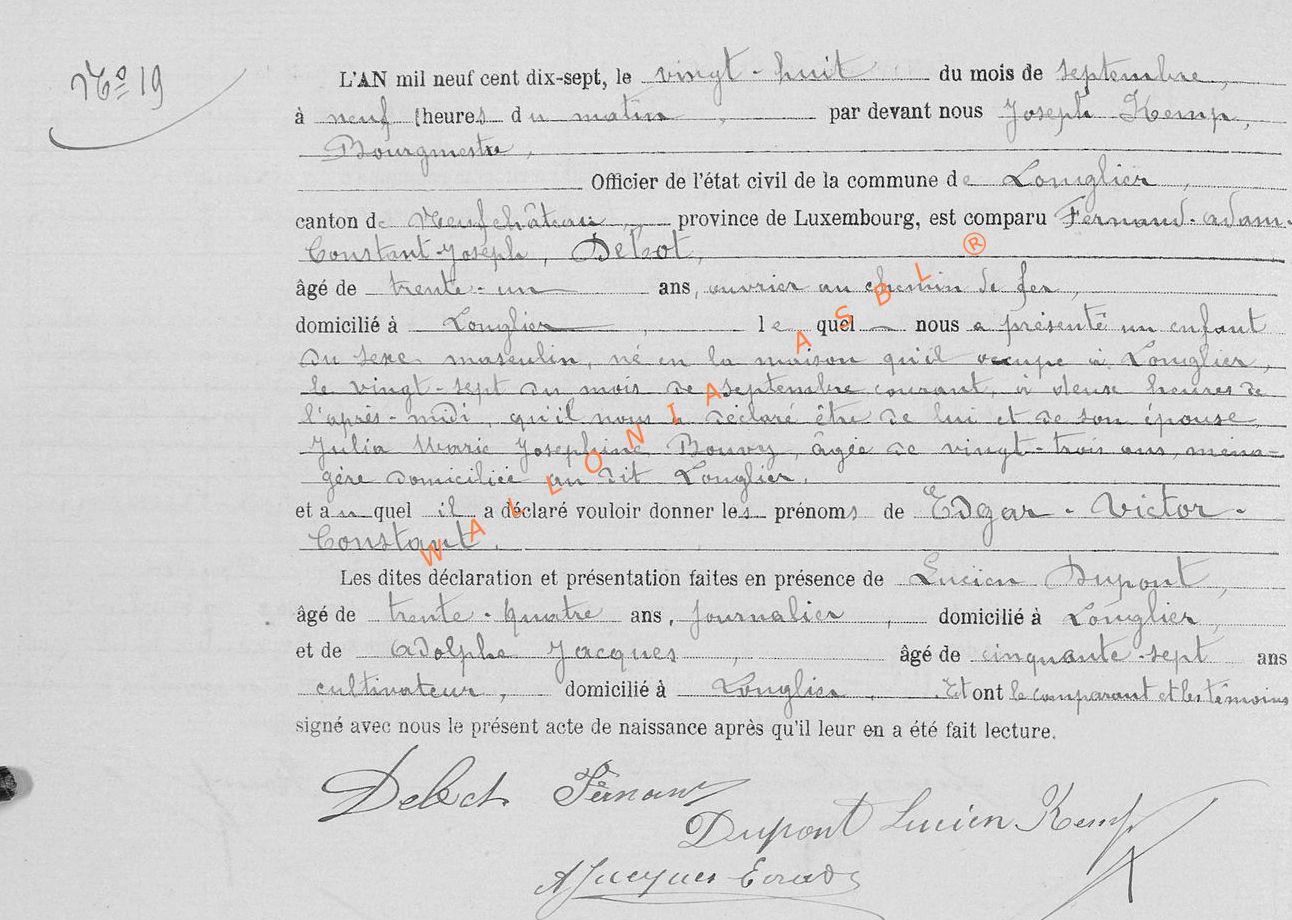 No 19
L'AN mil neuf cent dix-sept, le vingt-huit du mois de septembre,
à neuf heures du matin, par devant nous Joseph Kemp,
Bourgmestre,
Officier de l'état civil de la commune de Longlier,
canton de Neufchâteau, province de Luxembourg, est comparu Fernand-Adam-
Constant-Joseph, Debot,
âgé de trente-un ans, ouvrier au chemin de fer,
domicilié à Longlier, le quel nous a présenté un enfant
du sexe masculin, né en la maison qu'il occupe à Longlier,
le vingt-sept du mois de septembre courant, à deux heures de
l'après-midi, qu'il nous a déclaré être de lui et de son épouse
Julia Marie Josephine Bouvy, âgée de vingt-trois ans, ména-
gère domiciliée au dit Longlier.
et auquel il a déclaré vouloir donner les prénoms de Edgar-Victor-
Constant.
Les dites déclaration et présentation faites en présence de Lucien Dupont,
âgé de trente-quatre ans, journalier, domicilié à Longlier,
et de Adolphe Jacques, âgé de cinquante-sept ans
cultivateur, domicilié à Longlier. Et ont le comparant et les témoins
signé avec nous le présent acte de naissance après qu'il leur en a été fait lecture.
Debot Fernand
Dupont Lucien Kemp
A Jacques
WALLONIA ASBL ®